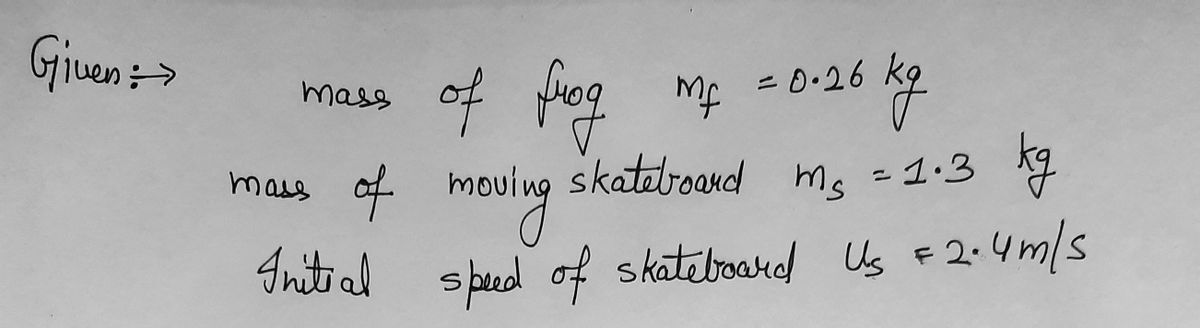 Given :→
mass of frog mf = 0.26 kg
mass of moving skateboard ms = 1.3 kg
Initial speed of skateboard Us = 2.4 m/s